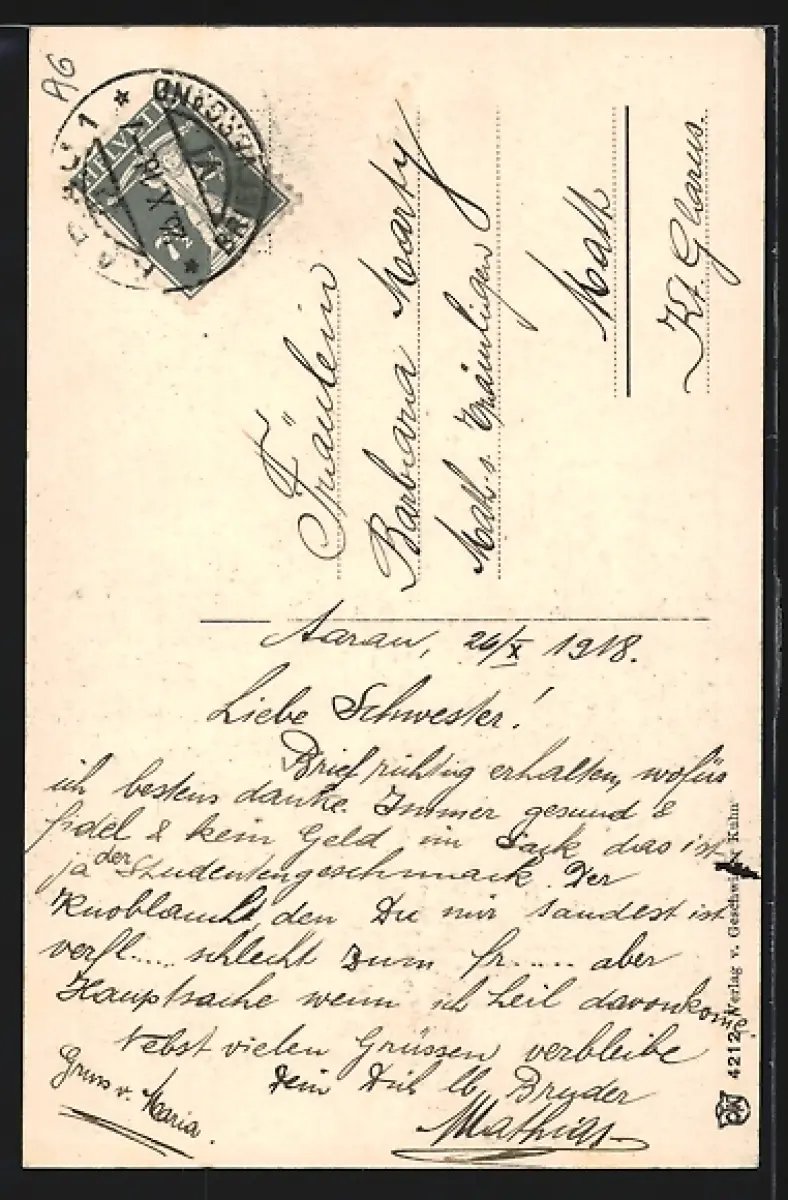 AG
HELVETIA
BRIEF
Fräulein
Barbara Marty
Math. s.
Math
Kt. Glarus.
Aarau, 26/X 1918.
Liebe Schwester!
Brief richtig erhalten, wofür
ich bestens danke. Immer gesund &
fidel & kein Geld im Sack das ist
ja der Studentengeschmack. Der
Knoblauch, den Du mir sandest ist
verfl..... schlecht zum fr..... aber
Hauptsache wenn ich heil davonkome.
Nebst vielen Grüssen verbleibe
Dein Dich lb. Bruder
Mathias
Gruss v. Maria.
4212 Verlag v. Geschwister Kuhn